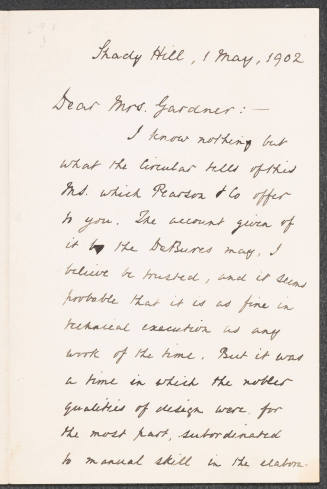 Shady Hill, 1 May, 1902
Dear Mrs. Gardner: —
I know nothing but
what the Circular tells of this
Ms. which Pearson & Co offer
to you. The account given of
it by the DeBures may, I
believe be trusted, and it seems
probable that it is as fine in
technical execution as any
work of the time. But it was
a time in which the nobler
qualities of design were, for
the most part, subordinated
to manual skill in the elabora-